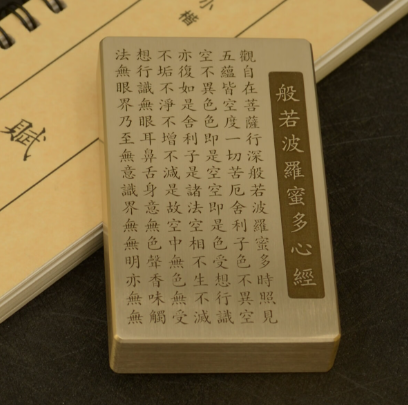 般若波羅蜜多心經
觀自在菩薩行深般若波羅蜜多時照見
五蘊皆空度一切苦厄舍利子色不異空
空不異色色即是空空即是色受想行識
亦復如是舍利子是諸法空相不生不滅
不垢不淨不增不減是故空中無色無受
想行識無眼耳鼻舌身意無色聲香味觸
法無眼界乃至無意識界無無明亦無無
小楷
賦